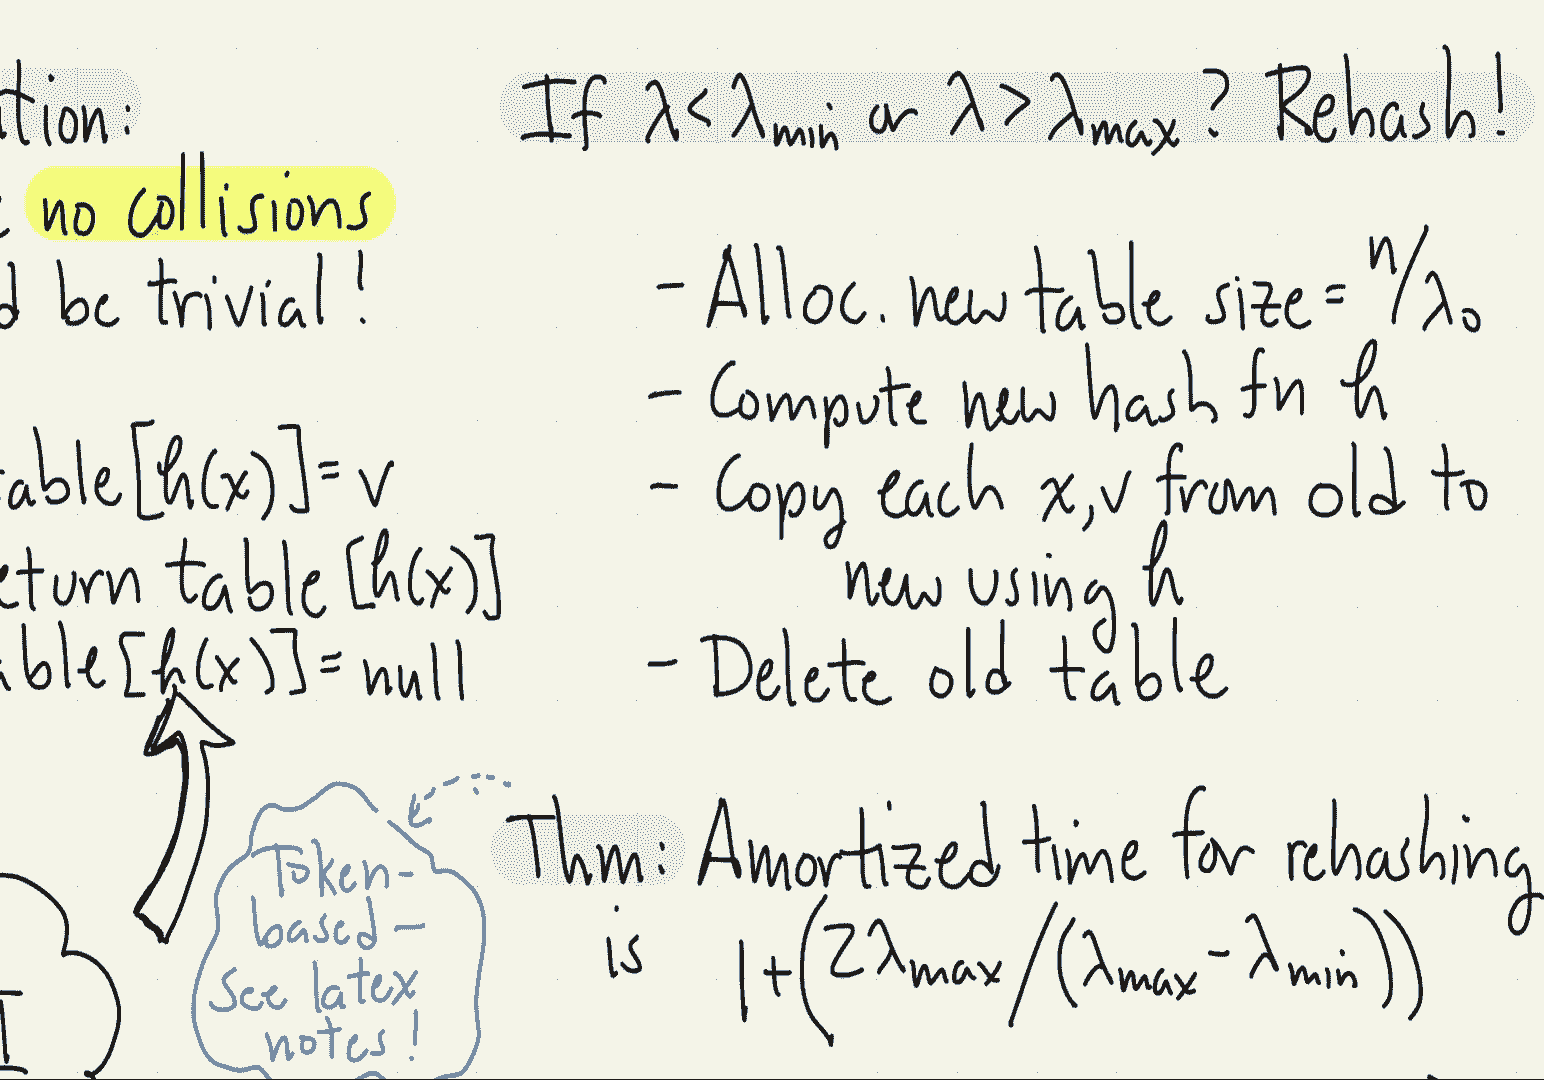 tion:
no collisions
be trivial!
table[h(x)]=v
return table[h(x)]
table[h(x)]=null
Token-
based-
See latex
notes!
If λ<λmin or λ>λmax? Rehash!
- Alloc. new table size = n/λ₀
- Compute new hash fn h
- Copy each x,v from old to
new using h
- Delete old table
Thm: Amortized time for rehashing
is 1+(2λmax/(λmax-λmin))